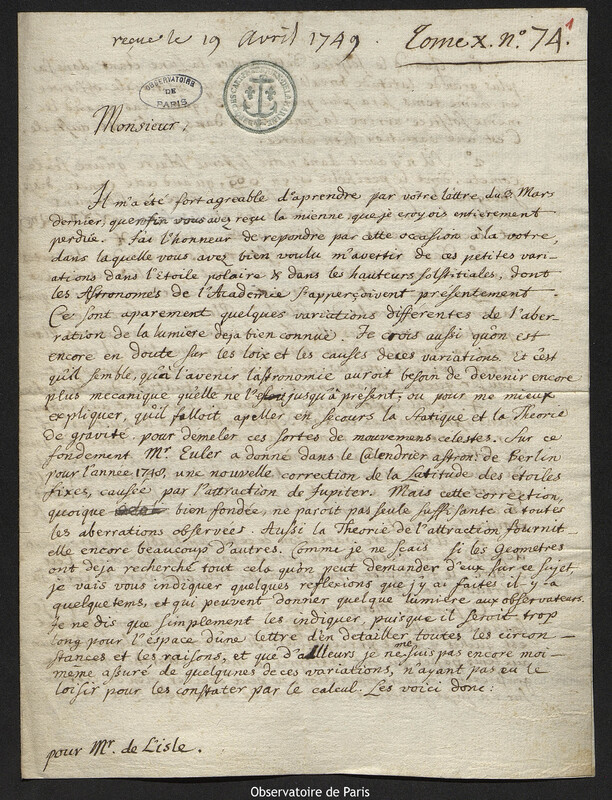 reçue le 19 Avril 1749. Tome X. n.º 74. 1
OBSERVATOIRE DE PARIS
Monsieur,
Il m'a été fort agreable d'aprendre par votre lettre du Mars
dernier, qu'enfin vous avez reçu la mienne, que je croyois entierement
perdüe. J'ai l'honneur de repondre par cette occasion à la votre,
dans laquelle vous avez bien voulu m'avertir de ces petites vari-
ations dans l'étoile polaire & dans les hauteurs solstitiales, dont
les Astronomes de l'Academie s'apperçoivent presentement.
Ce sont aparement quelques variations differentes de l'aber-
ration de la lumiere deja bien connüe. Je crois aussi qu'on est
encore en doute sur les loix et les causes de ces variations. Et c'est
qu'il semble, qu'à l'avenir l'astronomie auroit besoin de devenir encore
plus mecanique qu'elle ne l'est jusqu'à present, ou pour me mieux
expliquer, qu'il falloit apeller en secours la Statique et la Theorie
de gravité pour demeler ces sortes de mouvemens celestes. Sur ce
fondement Mr. Euler a donné dans le Calendrier astron. de Berlin
pour l'année 1748, une nouvelle correction de la latitude des étoiles
fixes, causée par l'attraction de Jupiter. Mais cette correction,
quoique bien fondée, ne paroit pas seule suffisante à toutes
les aberrations observées. Aussi la Theorie de l'attraction fournit-
elle encore beaucoup d'autres. Comme je ne scais si les Geometres
ont deja recherché tout cela qu'on peut demander d'eux sur ce sujet
je vais vous indiquer quelques reflexions que j'y ai faites il y a
quelque tems, et qui peuvent donner quelque lumiere aux observateurs.
Je ne dis que simplement les indiquer, puisque il seroit trop
long pour l'espace d'une lettre d'en detailler toutes les circon-
stances et les raisons, et que d'ailleurs je ne me suis pas encore moi-
meme assuré de quelqunes de ces variations, n'ayant pas eu le
loisir pour les constater par le calcul. Les voici donc:
pour Mr. de L'isle.
Observatoire de Paris